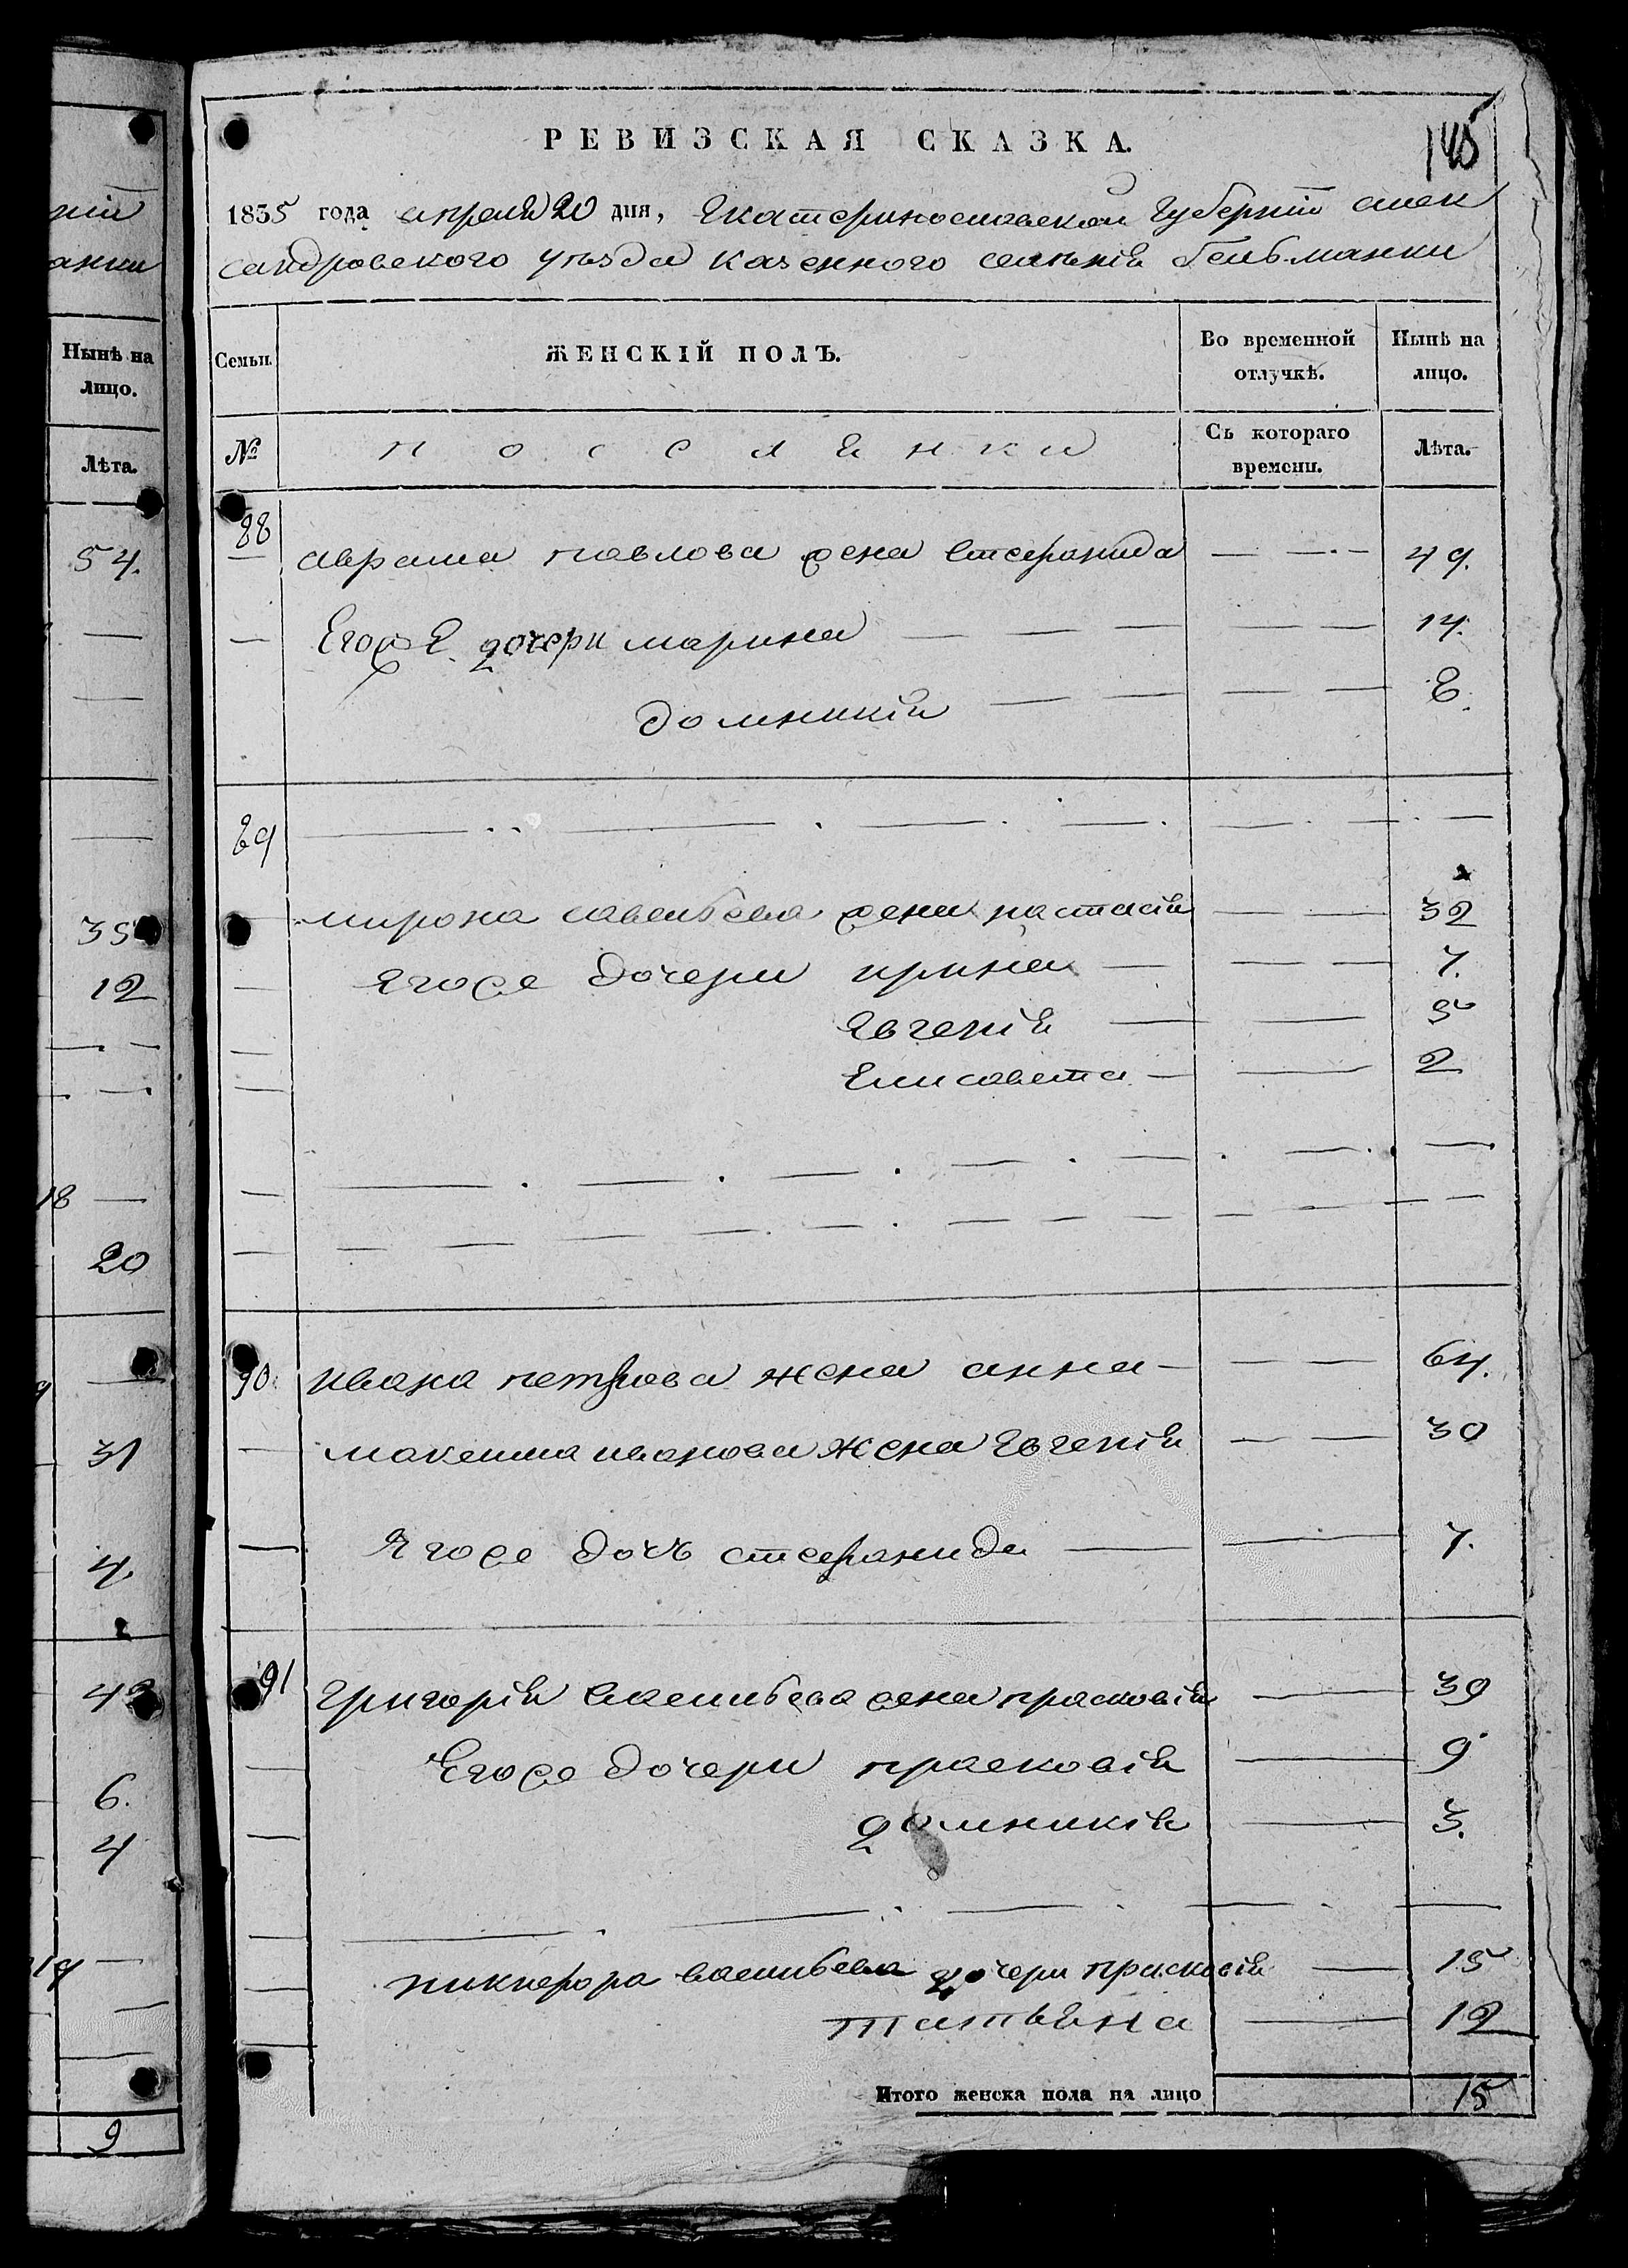 ній
анки
Нынѣ на
лицо.
Лѣта.
54.
35
12
18
20
31
4.
6.
4
9
РЕВИЗСКАЯ СКАЗКА.
145
1835 года апреля 20 дня, Екатеринославской Губерніи алек
сандровского уѣзда казенного селенія бельманки
Семьи.
ЖЕНСКІЙ ПОЛЪ.
Во временной
отлучкѣ.
Нынѣ на
лицо.
№
поселянки
Съ котораго
времени.
Лѣта.
88
аврама павлова жена стефанида 49.
Егоже 2. дочери марина 14.
домникія 8.
89
мирона савельева жена настасія 32
Егоже дочери ирина 7.
Евгенія 5
Елисавета 2
90.
ивана петрова жена анна 64.
максима иванова жена Евгенія 30
Егоже дочь стефанида 7.
91
григорія васильева жена прасковія 39
Егоже дочери прасковія 9
домникія 3.
никифора васильева дочери прасковія 15
татьяна 12
Итого женска пола на лицо 15